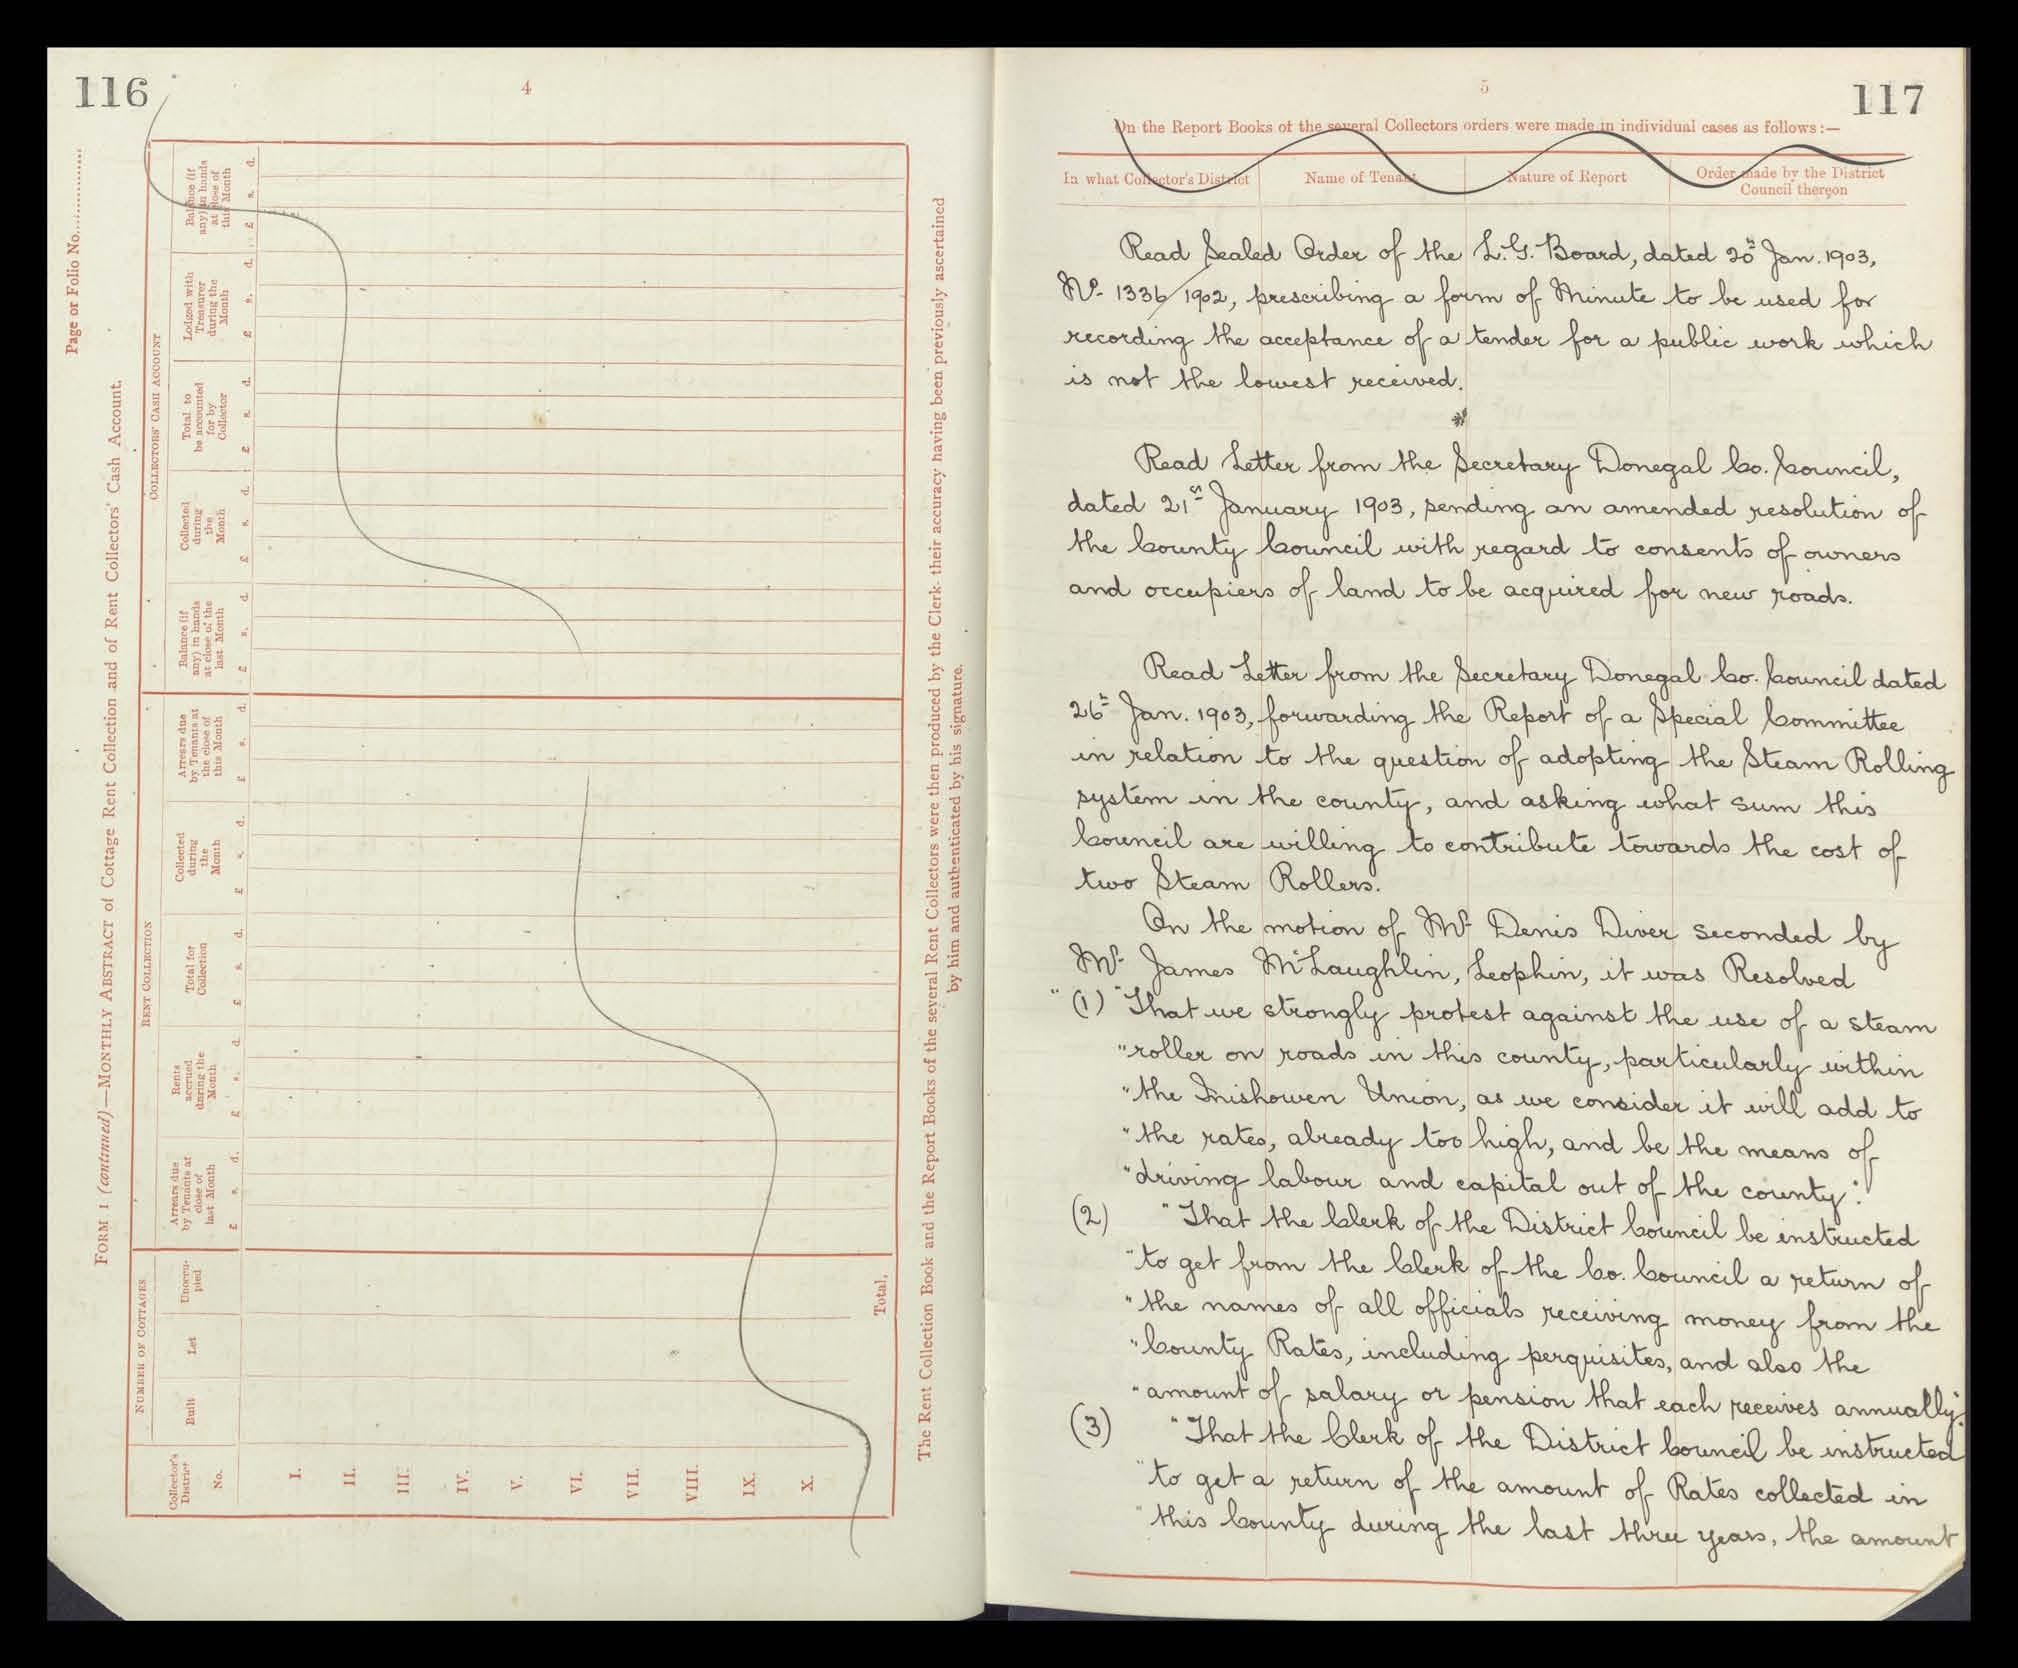 116
4
Page or Folio No.
FORM 1 (continued)—MONTHLY ABSTRACT of Cottage Rent Collection and of Rent Collectors' Cash Account.
NUMBER OF COTTAGES
RENT COLLECTION
COLLECTORS' CASH ACCOUNT
Collector's District No.
Built
Let
Unoccupied
Arrears due by Tenants at close of last Month
£ s. d.
Rents accrued during the Month
£ s. d.
Total for Collection
£ s. d.
Collected during the Month
£ s. d.
Arrears due by Tenants at the close of this Month
£ s. d.
Balance (if any) in hands at close of the last Month
£ s. d.
Collected during the Month
£ s. d.
Total to be accounted for by Collector
£ s. d.
Lodged with Treasurer during the Month
£ s. d.
Balance (if any) in hands at close of this Month
£ s. d.
I.
II.
III.
IV.
V.
VI.
VII.
VIII.
IX.
X.
Total,
The Rent Collection Book and the Report Books of the several Rent Collectors were then produced by the Clerk- their accuracy having been previously ascertained
by him and authenticated by his signature.
5
117
On the Report Books of the several Collectors orders were made in individual cases as follows:—
In what Collector's District
Name of Tenant
Nature of Report
Order made by the District Council thereon
Read Sealed Order of the L. G. Board, dated 20th Jan. 1903,
No. 1336/1902, prescribing a form of Minute to be used for
recording the acceptance of a tender for a public work which
is not the lowest received.
Read Letter from the Secretary Donegal Co. Council,
dated 21st January 1903, sending an amended resolution of
the County Council with regard to consents of owners
and occupiers of land to be acquired for new roads.
Read Letter from the Secretary Donegal Co. Council dated
26th Jan. 1903, forwarding the Report of a Special Committee
in relation to the question of adopting the Steam Rolling
system in the county, and asking what sum this
Council are willing to contribute towards the cost of
two Steam Rollers.
On the motion of Mr Denis Diver seconded by
Mr. James McLaughlin, Leophin, it was Resolved
" (1) "That we strongly protest against the use of a steam
"roller on roads in this county, particularly within
"the Inishowen Union, as we consider it will add to
"the rates, already too high, and be the means of
"driving labour and capital out of the county".
(2) "That the Clerk of the District Council be instructed
"to get from the Clerk of the Co. Council a return of
"the names of all officials receiving money from the
"County Rates, including perquisites, and also the
"amount of salary or pension that each receives annually."
(3) "That the Clerk of the District Council be instructed
"to get a return of the amount of Rates collected in
"this County during the last three years, the amount